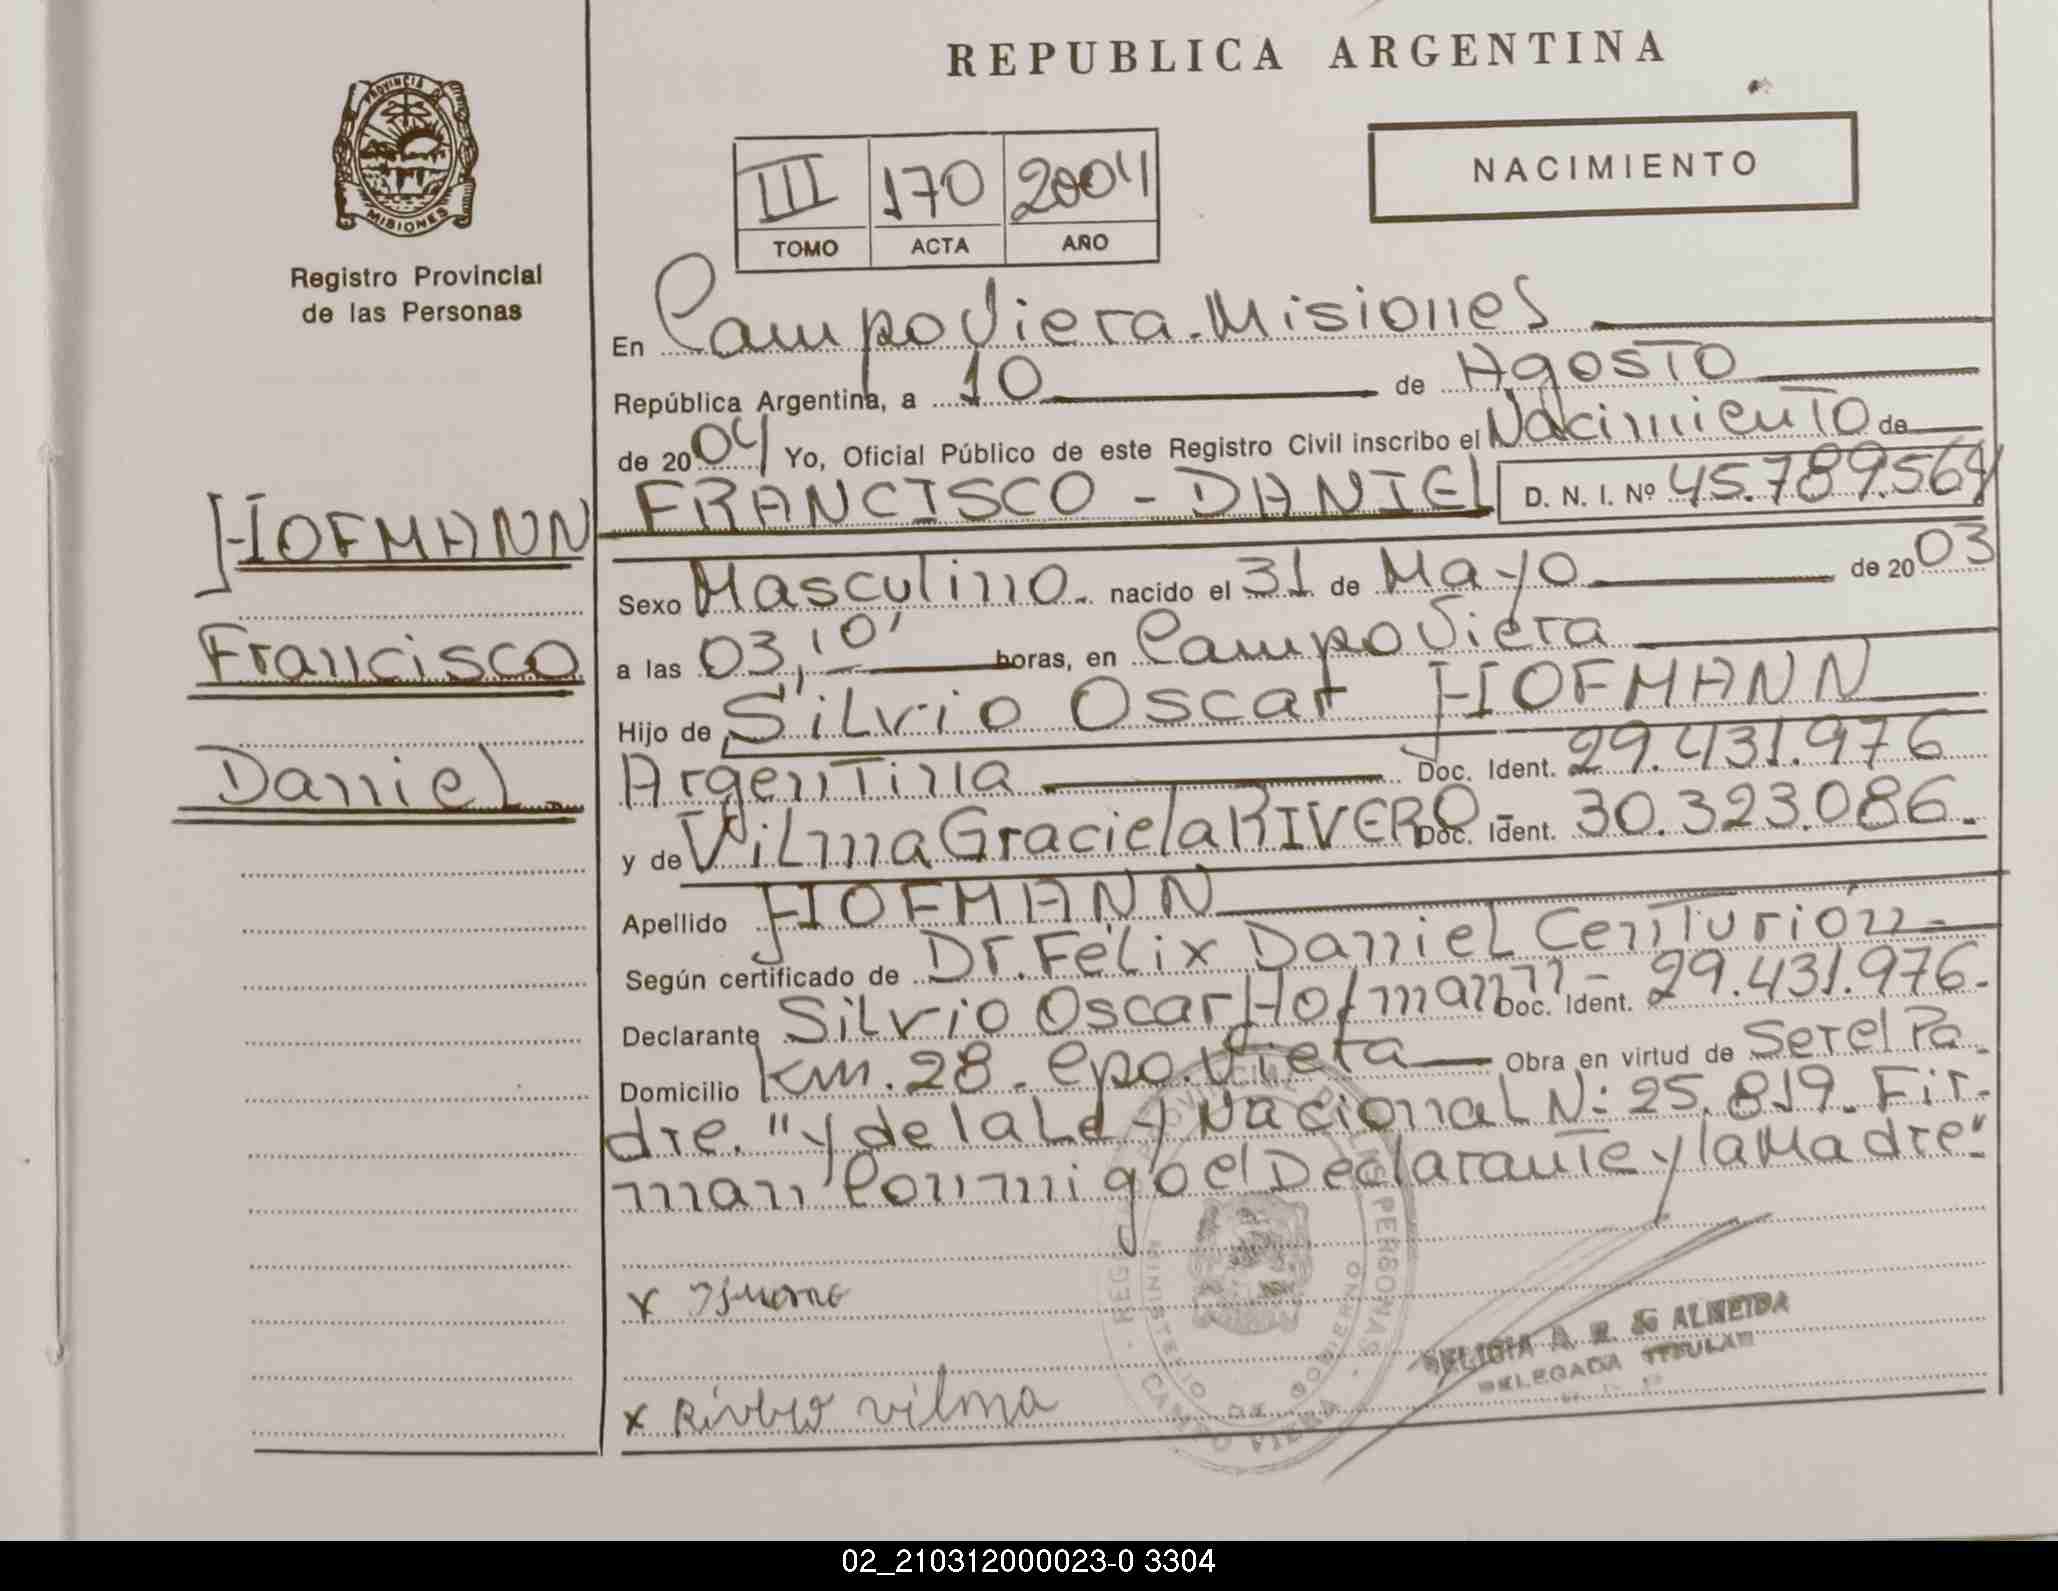 REPUBLICA ARGENTINA
PROVINCIA DE
MISIONES
Registro Provincial
de las Personas
III 170 2004
TOMO ACTA AÑO
NACIMIENTO
En Campo Viera. Misiones
República Argentina, a 10 de Agosto
de 2004 Yo, Oficial Público de este Registro Civil inscribo el Nacimiento de
FRANCISCO - DANIEL D. N. I. Nº 45.789.564
HOFMANN
Francisco
Daniel.
Sexo Masculino. nacido el 31 de Mayo de 2003
a las 03,10' horas, en Campo Viera
Hijo de Silvio Oscar HOFMANN
Argentina Doc. Ident. 29.431.976
y de Vilma Graciela RIVERO - Doc. Ident. 30.323.086.
Apellido HOFMANN
Según certificado de Dr. Félix Daniel Centurión -
Declarante Silvio Oscar Hofmann - Doc. Ident. 29.431.976.
Domicilio Km. 28. Cpo. Viera Obra en virtud de Ser el Pa
dre. "y de la Ley Nacional N: 25.819. Fir-
man Conmigo el Declarante y la Madre"
x
x Rivero vilma
CAMPO VIERA
ALMEIDA
DELEGADA TITULAR
02_210312000023-0 3304